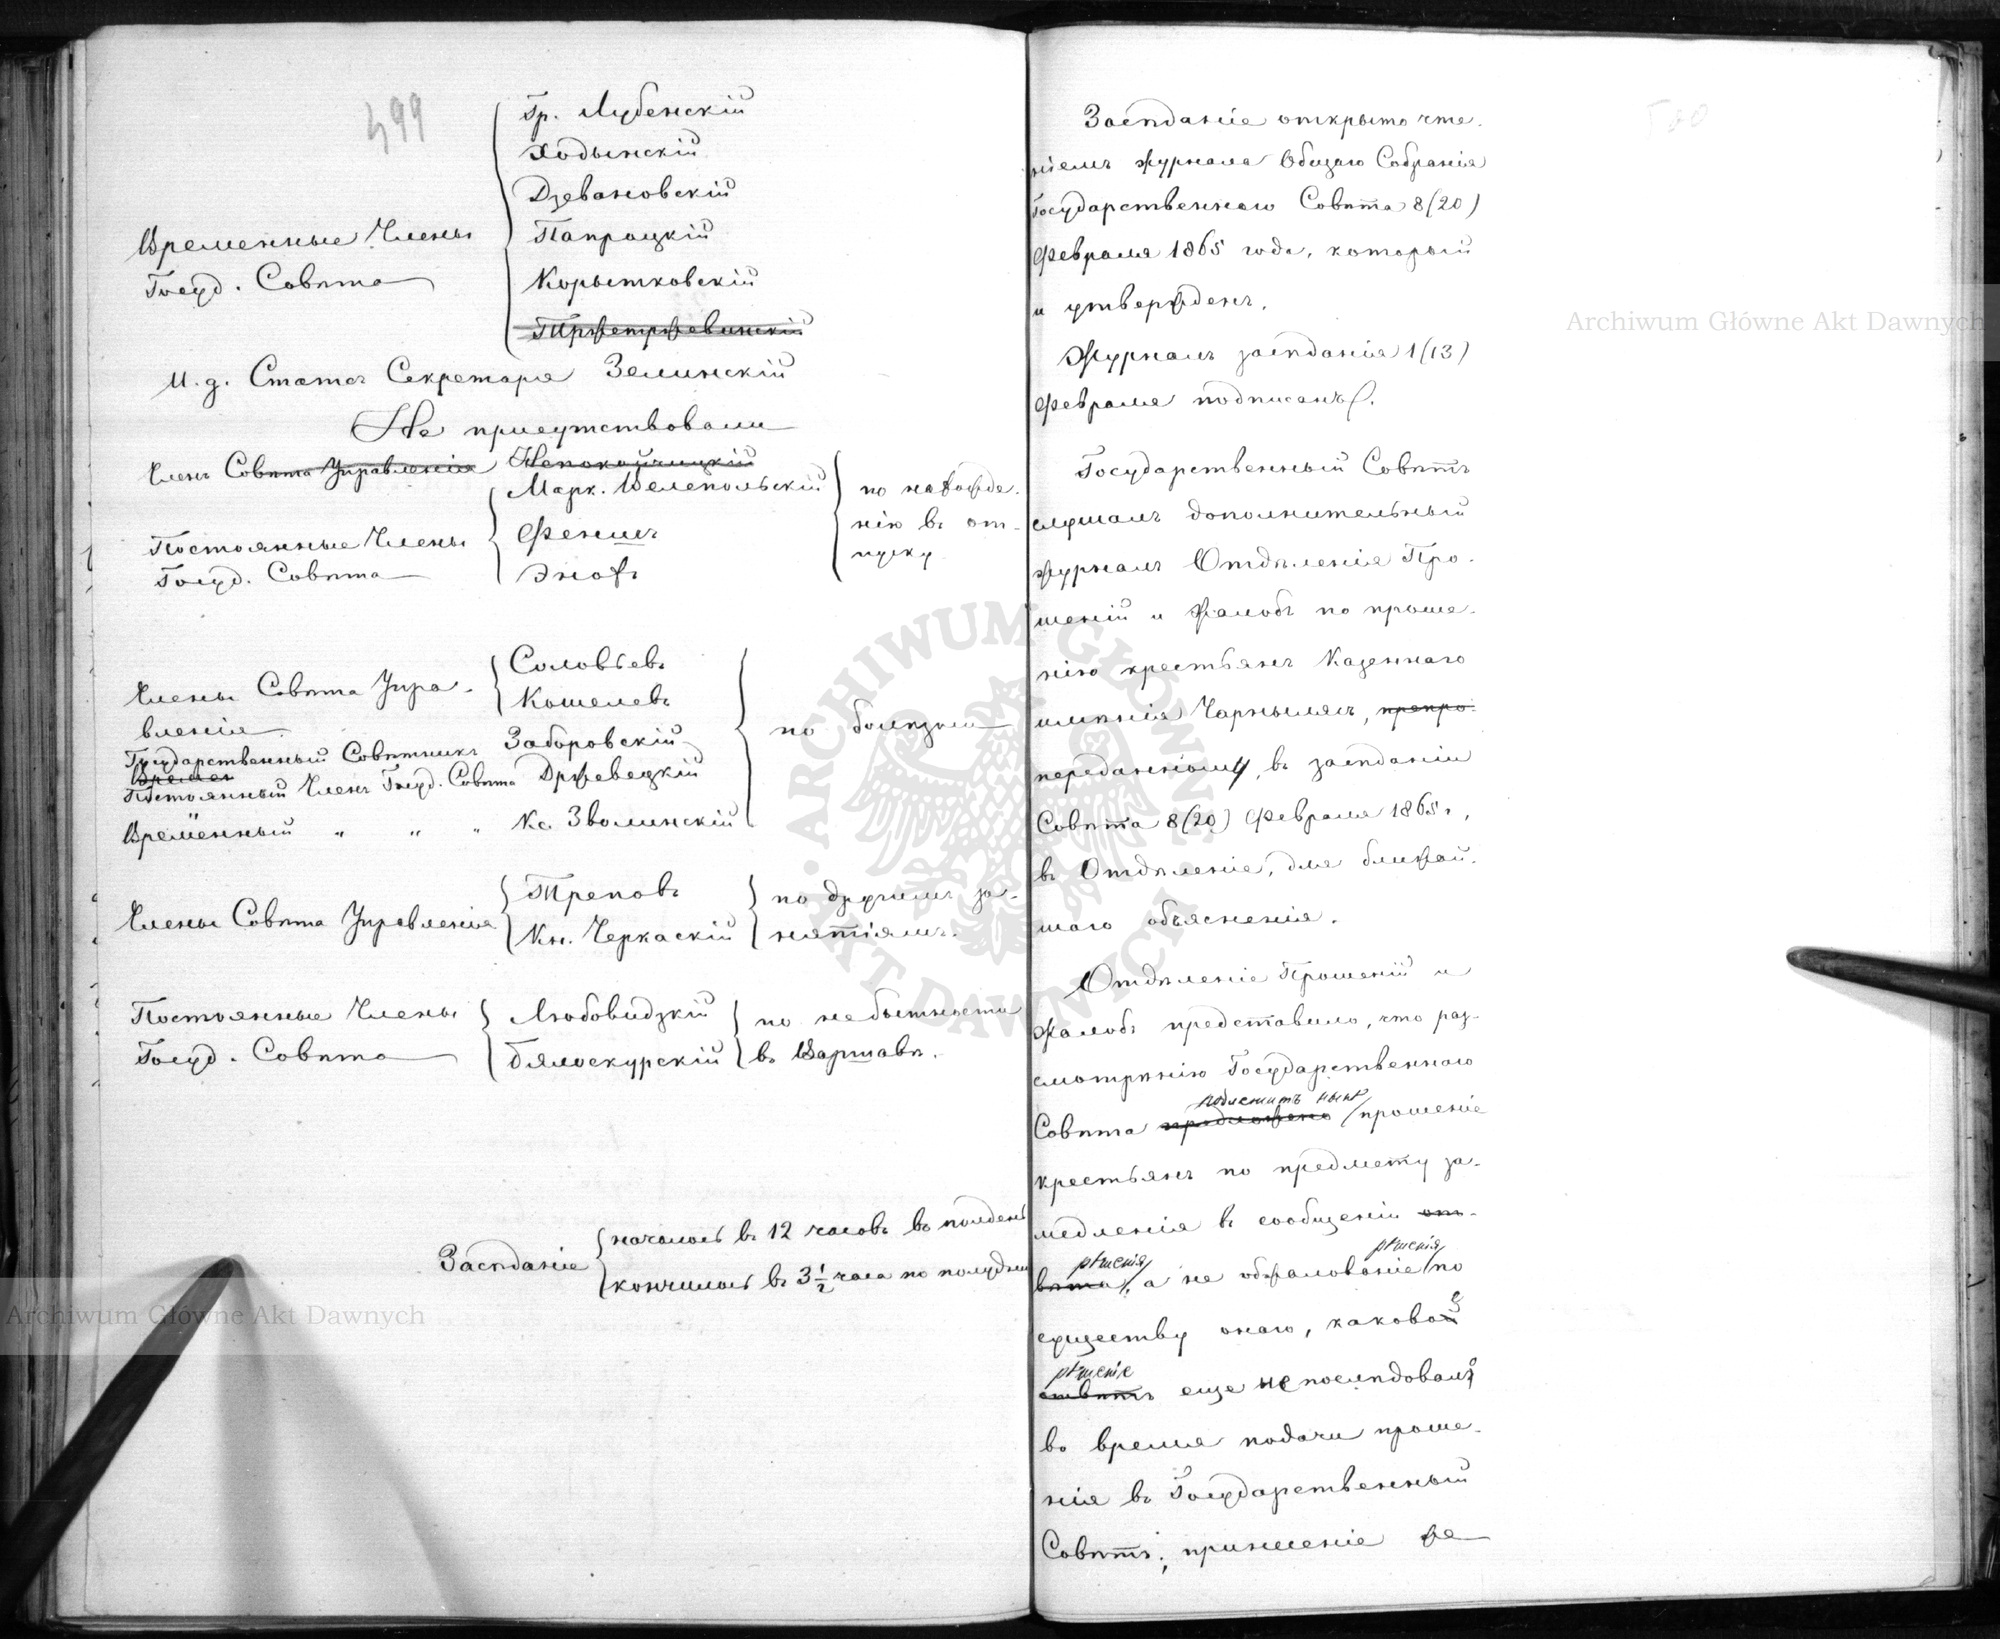 499
Гр. Лубенскій
Ходынскій
Дзевановскій
Временные Члены
Папроцкій
Госуд. Совѣта
Корытковскій
Тржетржевинскій
И. д. Статсъ Секретаря Зелинскій
Не присутствовали
Членъ Совѣта Управленія Непокойчицкій
Марк. Велепольскій
по нахожде-
нію въ от-
пуску
Постоянные Члены
Госуд. Совѣта
Феншъ
Энохъ
Члены Совѣта Упра-
вленія
Соловьевъ
Кошелевъ
по болѣзни
Государственный Совѣтникъ Заборовскій
Времен
Постоянный Членъ Госуд. Совѣта Држевецкій
Временный " " " Кс. Зволинскій
Члены Совѣта Управленія
Треповъ
Кн. Черкаскій
по другимъ за-
нятіямъ.
Постоянные Члены
Госуд. Совѣта
Любовидзкій
Бялоскурскій
по небытности
въ Варшавѣ.
Засѣданіе
началось въ 12 часовъ въ полдень
кончилось въ 3 1/2 часа по полудни
500
Засѣданіе открыто чте-
ніемъ журнала Общаго Собранія
Государственнаго Совѣта 8(20)
Февраля 1865 года, который
и утвержденъ.
Журналъ засѣданія 1(13)
Февраля подписанъ.
Государственный Совѣтъ
слушалъ дополнительный
журналъ Отдѣленія Про-
шеній и Жалобъ по проше-
нію крестьянъ Казеннаго
имѣнія Чарнылясъ, препро-
переданному, въ засѣданіи
Совѣта 8(20) Февраля 1865 г,
въ Отдѣленіе, для ближай-
шаго объясненія.
Отдѣленіе Прошеній и
Жалобъ представило, что раз-
смотрѣнію Государственнаго
подлежитъ нынѣ
Совѣта предложено прошеніе
крестьянъ по предмету за-
медленія въ сообщеніи от-
рѣшенія рѣшенія
вѣта, а не обжалованіе по
существу онаго, каковое
рѣшеніе
отвѣтъ еще не послѣдовало
во время подачи проше-
нія въ Государственный
Совѣтъ; принесеніе же
Archiwum Główne Akt Dawnych
Archiwum Główne Akt Dawnych
ARCHIWUM GŁÓWNE AKT DAWNYCH